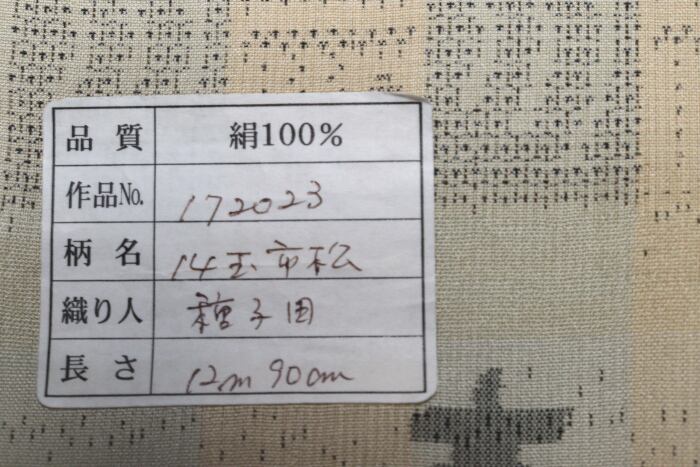 品質 絹100%
作品No. 172023
柄名 14玉市松
織り人 種子田
長さ 12m90cm